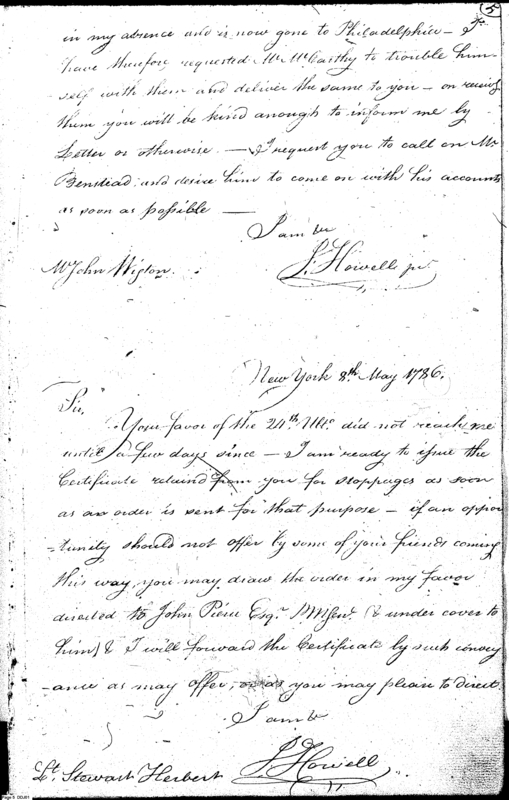 (5
in my absence and is now gone to Philadelphia – I
have therefore requested Mr McCarthy to trouble him-
self with them and deliver the same to you – on receiving
them you will be kind anough to inform me by
Letter or otherwise. — I request you to call on Mr
Benstead and desire him to come on with his accounts
as soon as possible —
I am &c
J. Howell jr.
Mr John Wigton.
New York 8th. May 1786.
Sir,
Your favor of the 24th. Ulto. did not reach me
until a few days since – I am ready to issue the
Certificate retaind from you for stoppages as soon
as an order is sent for that purpose – if an oppor
-tunity should not offer by some of your friends coming
this way, you may draw the order in my favor
directed to John Pierce Esqr. PMGenl. (& under cover to
him) & I will forward the Certificate by such convey
-ance as may offer, or as you may please to direct
I am &c
J. Howell
Lt. Stewart Herbert
Page 5 DDJ01